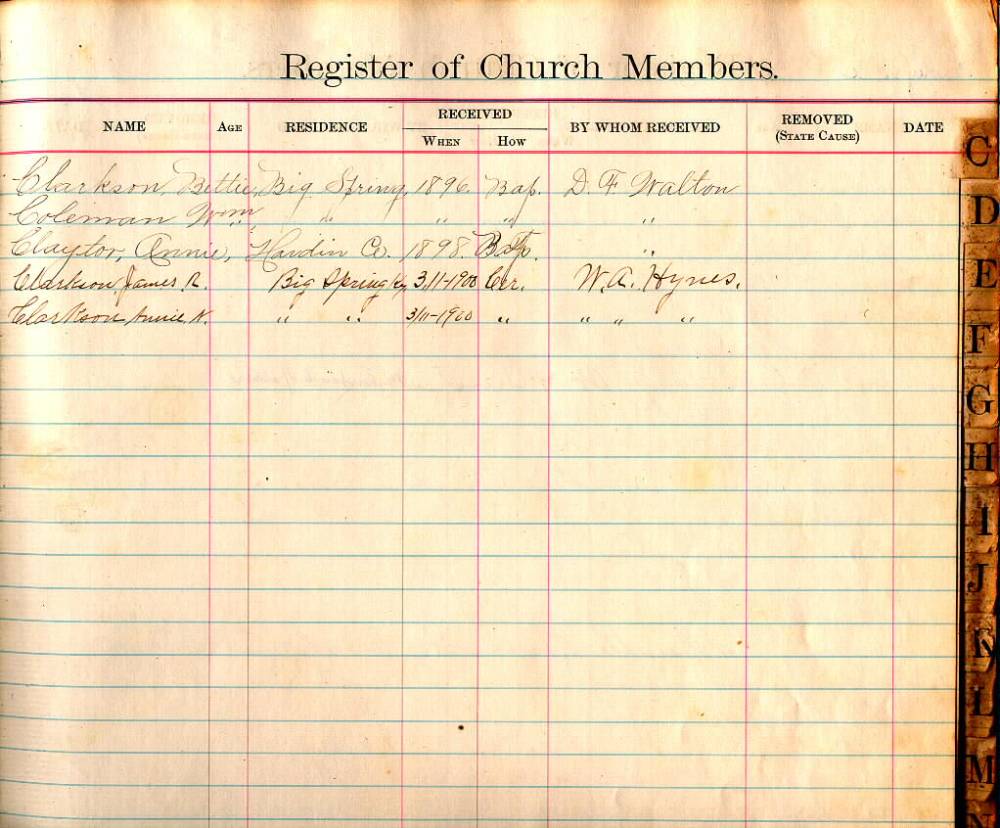 Register of Church Members.
NAME AGE RESIDENCE RECEIVED WHEN HOW BY WHOM RECEIVED REMOVED (STATE CAUSE) DATE
Clarkson, Bettie, Big Spring, 1896. Bap. D. F. Walton
Coleman Wm " " " "
Claytor, Annie, Hardin Co. 1898. Bap. "
Clarkson, James R. Big Spring Ky 3/11-1900 Cer. W. A. Hynes.
Clarkson Annie N. " " 3/11-1900 " " " "
C
D
E
F
G
H
I
J
K
L
M
N